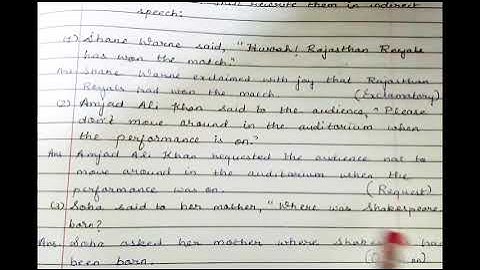 rewrite them in indirect
speech:
(1) Shane Warne said, "Hurrah! Rajasthan Royals
has won the match."
Ans Shane Warne exclaimed with joy that Rajasthan
Royals had won the match. (Exclamatory)
(2) Amjad Ali Khan said to the audience, "Please
don't move around in the auditorium when
the performance is on."
Ans Amjad Ali Khan requested the audience not to
move around in the auditorium when the
performance was on. (Request)
(3) Soha said to her mother, "Where was Shakespeare
born?
Ans. Soha asked her mother where had
been born.